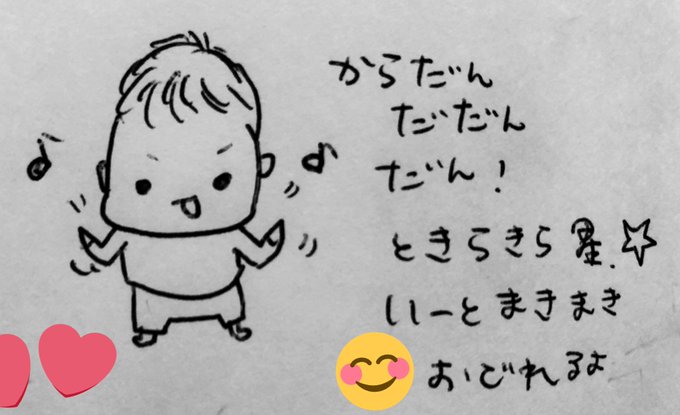 からだん
だだん
だん！
ときらきら星☆
いーとまきまき
おどれるよ